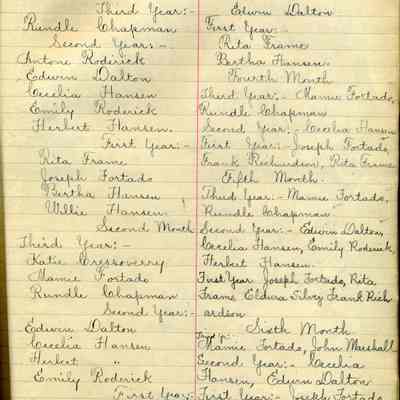 Third Year:-
Rundle Chapman
Second Year:-
Antone Roderick
Edwin Dalton
Cecelia Hansen
Emily Roderick
Herbert Hansen.
First Year:-
Rita Frame
Joseph Fortado
Bertha Hansen
Willie Hansen
Second Month
Third Year:-
Katie
Mamie Fortado
Rundle Chapman
Second Year:-
Edwin Dalton
Cecelia Hansen
Herbert "
Emily Roderick
First Year:-
Edwin Dalton
First Year:-
Rita Frame
Bertha Hansen.
Fourth Month
Third Year:- Mamie Fortado,
Rundle Chapman
Second Year:- Cecelia Hansen
First Year:- Joseph Fortado,
Frank Richardson, Rita Frame
Fifth Month.
Third Year:- Mamie Fortado,
Rundle Chapman.
Second Year:- Edwin Dalton,
Cecelia Hansen, Emily Roderick,
Herbert Hansen.
First Year Joseph Fortado, Rita
Frame, Frank Rich
ardson
Sixth Month
Mamie Fortado, John Marshall
Second Year:- Cecelia
Hansen, Edwin Dalton
First Year:- Joseph Fortado